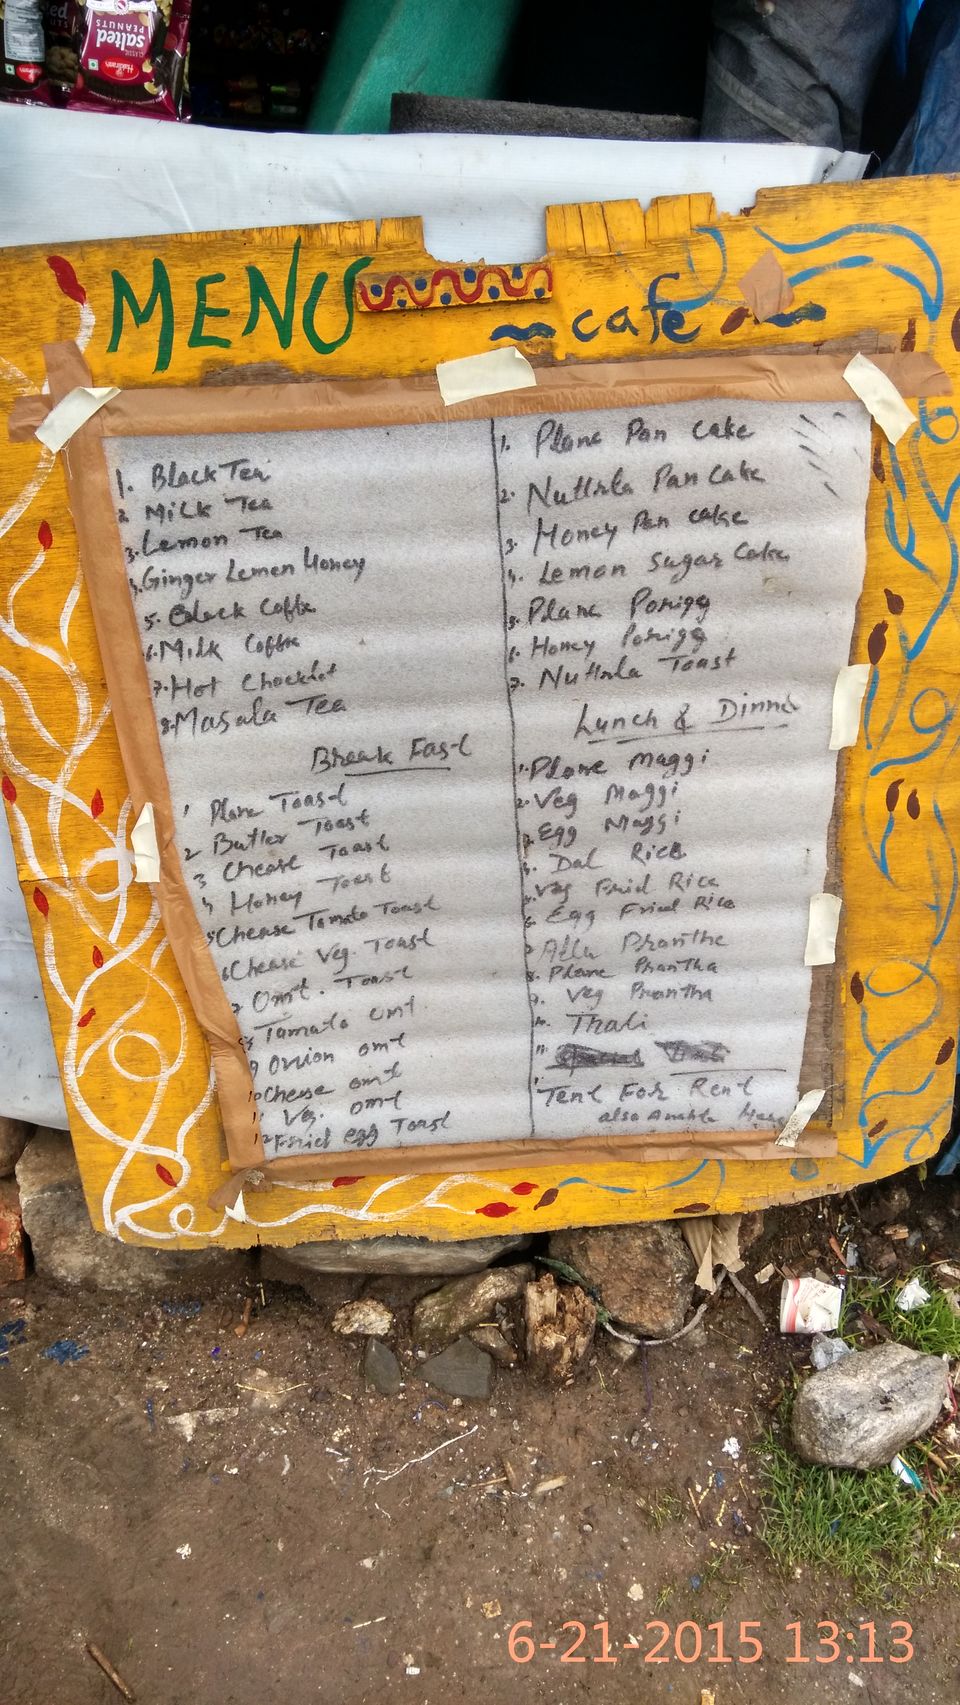 salted
PEANUTS
CLASSIC
Haldiram's
MENU
cafe
1. Black Tea
2 Milk Tea
3. Lemon Tea
4. Ginger Lemen Honey
5. Black Coffe
6. Milk Coffee
7. Hot Chocklot
8. Masala Tea
Break Fast
1 Plane Toast
2 Butter Toast
3 Chease Toast
4 Honey Toast
5 Chease Tomato Toast
6 Chease Veg. Toast
7 Omt. Toast
8 Tamato omt
9 Onion omt
10 Chease omt
11 Veg. omt
12 Fried egg Toast
1. Plane Pan Cake
2. Nutlnla Pan Cake
3. Honey Pan Cake
4. Lemon Sugar Cake
5. Plane Porigg
6. Honey Porigg
7. Nutlnla Toast
Lunch & Dinner
1. Plane Maggi
2. Veg Maggi
3. Egg Maggi
4. Dal Rice
5. Veg Fried Rice
6. Egg Fried Rice
7. Allu Prantha
8. Plane Prantha
9. Veg Prantha
10. Thali
11.
Tent For Rent
also
6-21-2015 13:13